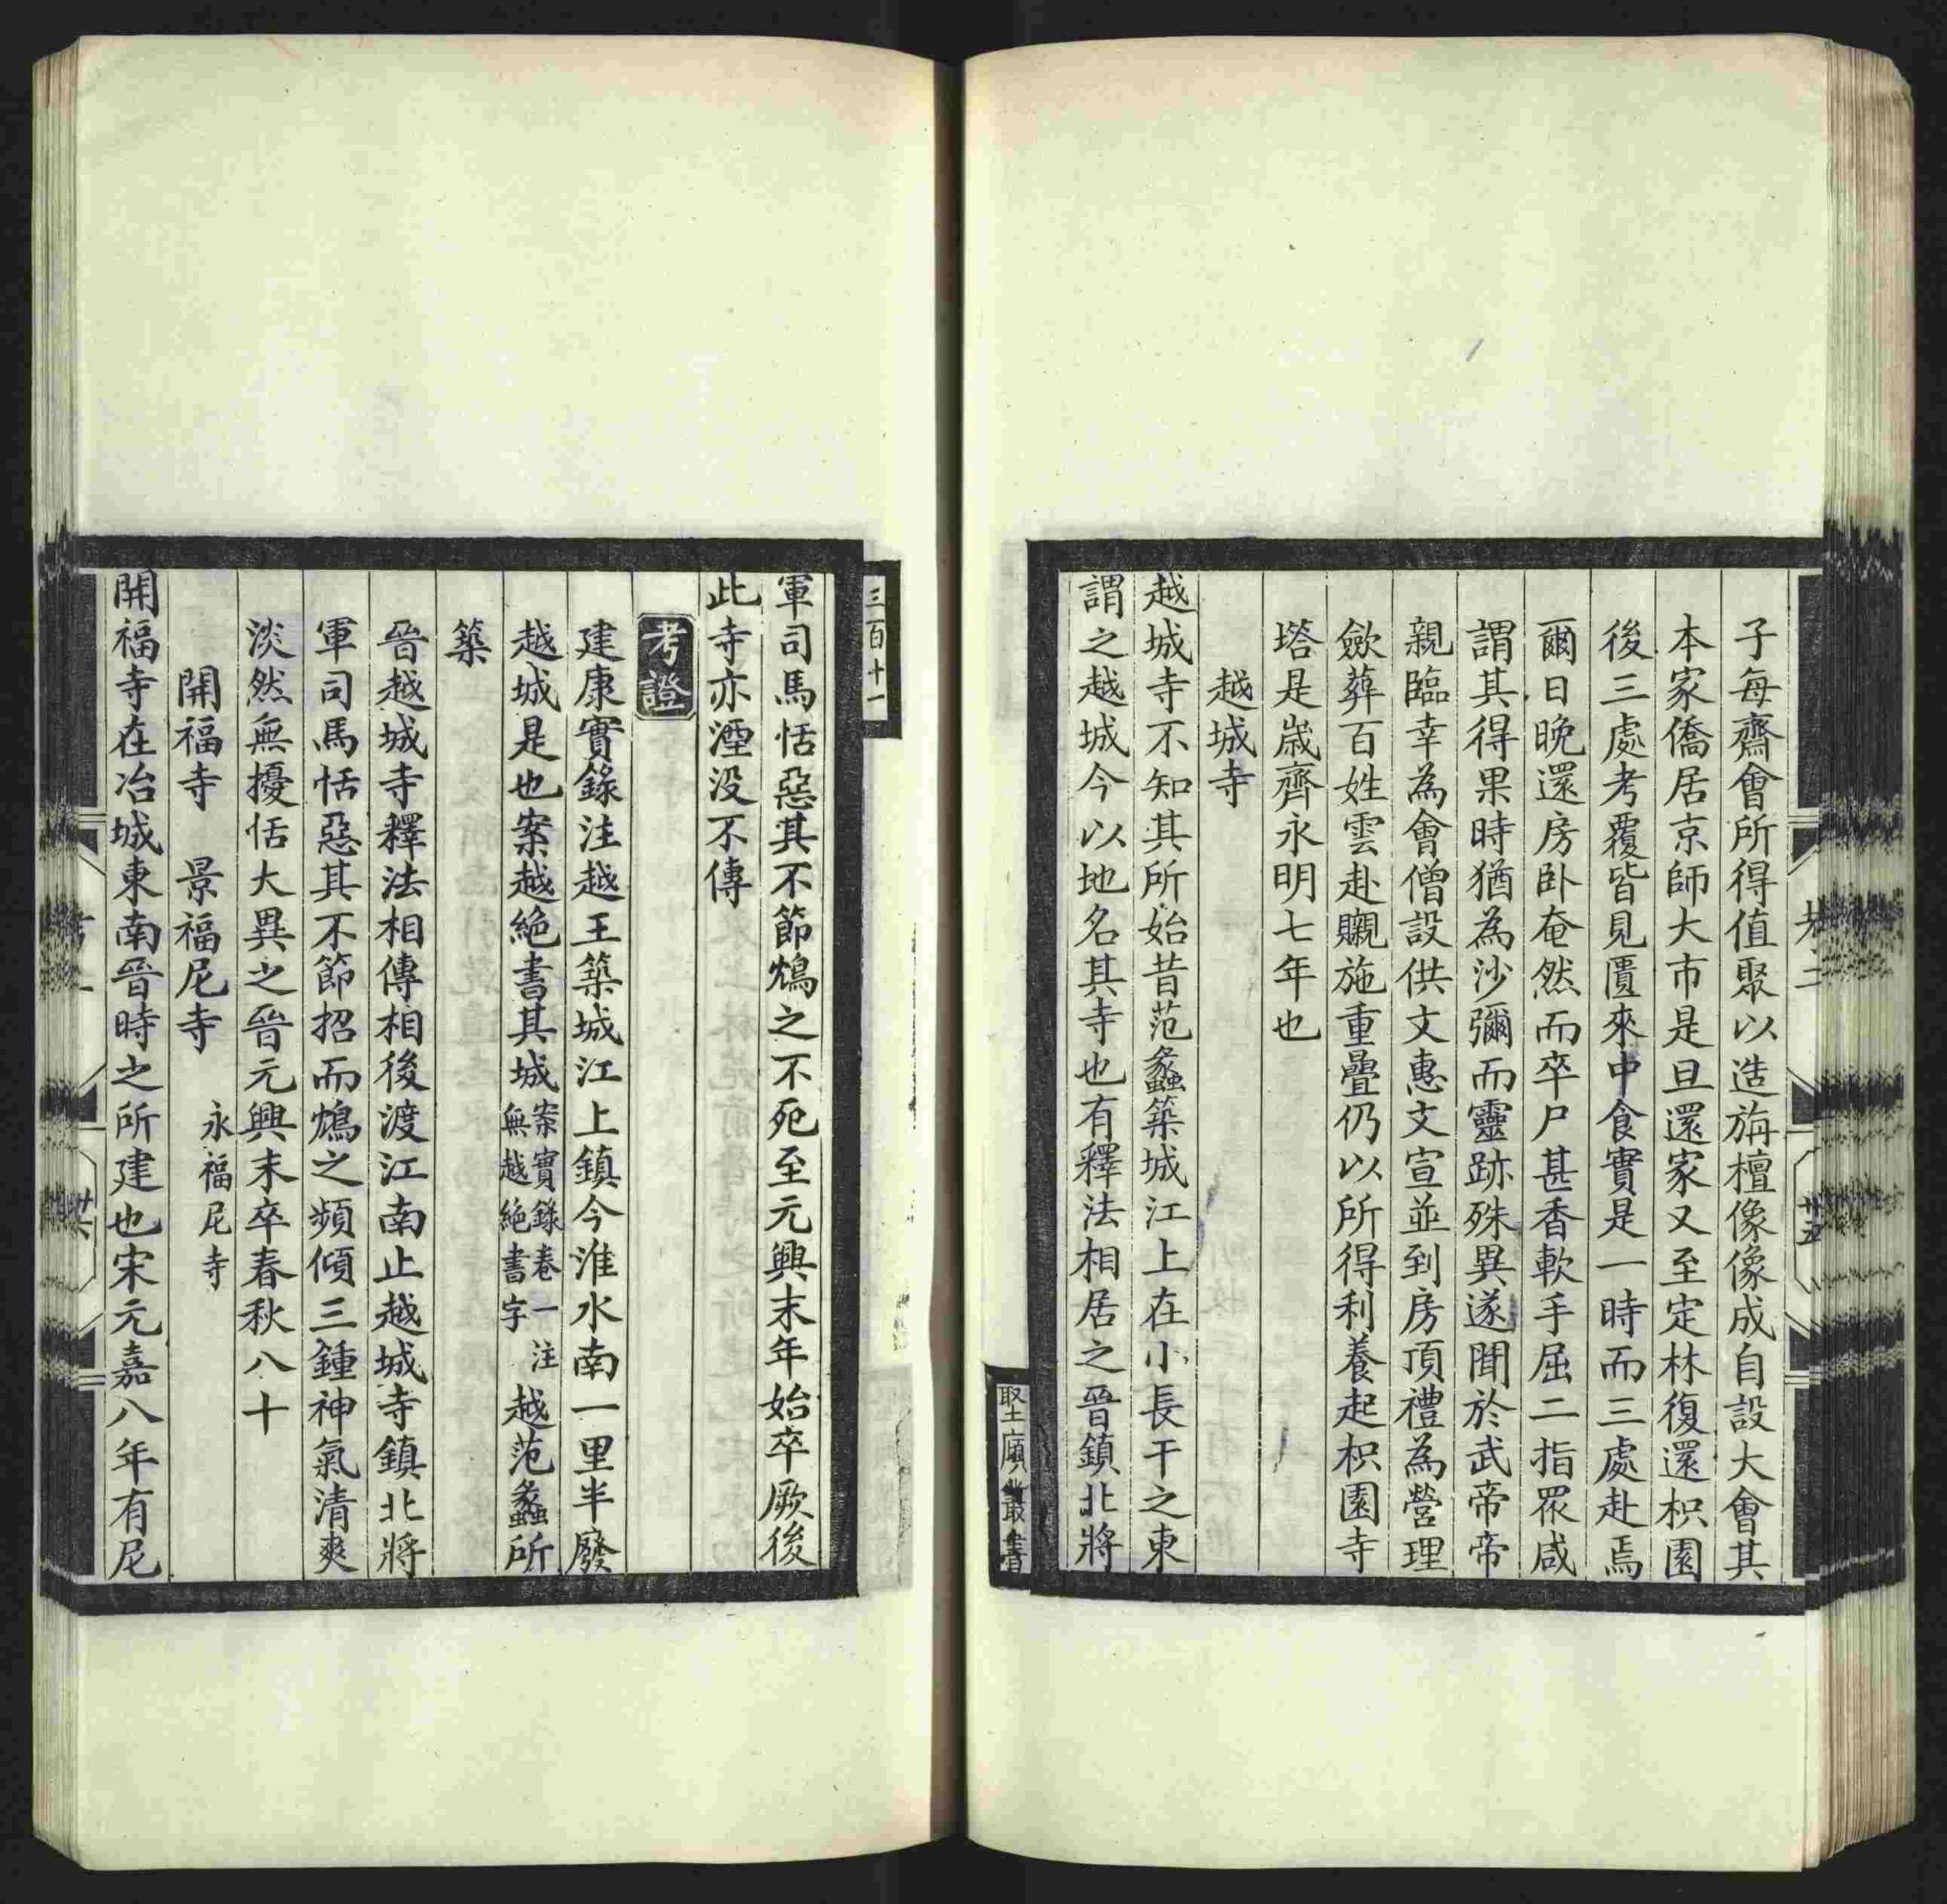 子每齋會所得值聚以造旃檀像像成自設大會其
本家僑居京師大市是旦還家又至定林復還枳園
後三處考覆皆見匿來中食實是一時而三處赴焉
爾日晚還房卧奄然而卒尸甚香軟手屈二指眾咸
謂其得果時猶為沙彌而靈跡殊異遂聞於武帝帝
親臨幸為會僧設供文惠文宣並到房頂禮為營理
歛葬百姓雲赴䞋施重疊仍以所得利養起枳園寺
塔是歲齊永明七年也
越城寺
越城寺不知其所始昔范蠡築城江上在小長干之東
謂之越城今以地名其寺也有釋法相居之晉鎮北將
堅廎叢書
三百十一
軍司馬恬惡其不節鴆之不死至元興末年始卒厥後
此寺亦湮没不傳
考證
建康實錄注越王築城江上鎮今淮水南一里半廢
越城是也案越絕書其城案實錄卷一注無越絕書字越范蠡所
築
晉越城寺釋法相傳相後渡江南止越城寺鎮北將
軍司馬恬惡其不節招而鴆之頻傾三鍾神氣清爽
淡然無擾恬大異之晉元興末卒春秋八十
開福寺 景福尼寺 永福尼寺
開福寺在冶城東南晉時之所建也宋元嘉八年有尼